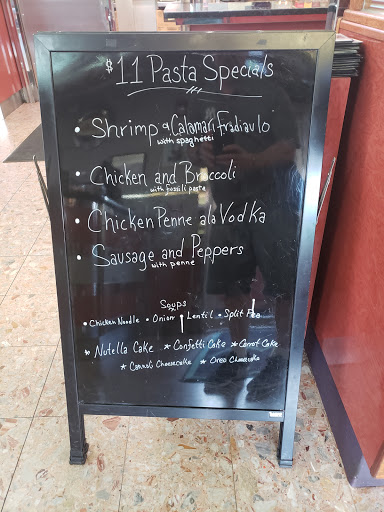 $11 Pasta Specials
• Shrimp & Calamari Fradiavlo
with spaghetti
• Chicken and Broccoli
with fossili pasta
• Chicken Penne ala Vodka
• Sausage and Peppers
with penne
Soups
• Chicken Noodle • Onion • Lentil • Split Pea
* Nutella Cake * Confetti Cake * Carrot Cake
* Cannoli Cheesecake * Oreo Cheesecake